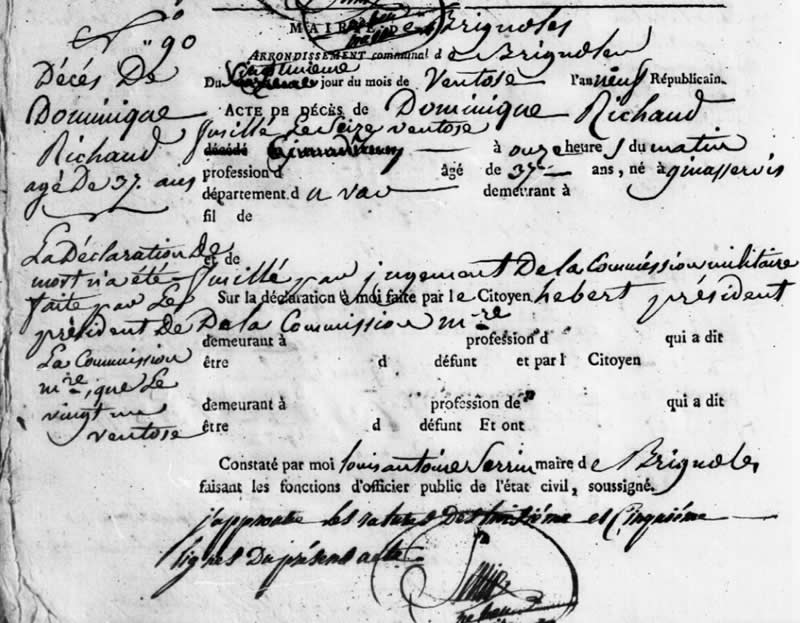 N° 90
Décés De
Dominique
Richaud
agé De 37. ans
La Déclaration De
mort n'a été
faite par Le
président De
La Commission
mre, que Le
vingt un
ventose
MAIRIE de Brignoles
ARRONDISSEMENT communal de Brignoles
Du vingtunieme jour du mois de Ventose l'an neuf Républicain.
ACTE DE DÉCÈS de Dominique Richaud
fusillé Le Seize ventose
décédé à onze heures du matin
profession d âgé de 37 ans, né à ginasservis
département du var demeurant à
fil de
et de
fusillé par jugement De la Commission militaire
Sur la déclaration à moi faite par le Citoyen hebert président
De la Commission mre
demeurant à profession d qui a dit
être d défunt et par l Citoyen
demeurant à profession de qui a dit
être d défunt Et ont
Constaté par moi Louis antoine Serrin maire de Brignoles
faisant les fonctions d'officier public de l'état civil, soussigné.
j'approuve les ratures Des huitième et Cinquième
lignes Du présent acte